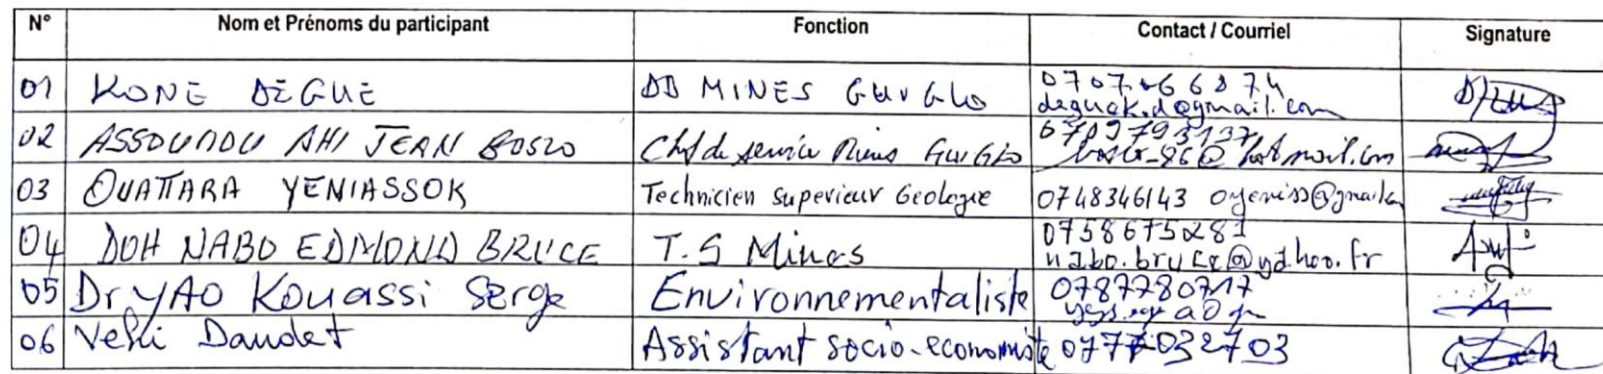 N° Nom et Prénoms du participant Fonction Contact / Courriel Signature
01 KONE DÈGUE DD MINES GUIGLO 0707066874
deguek.d@gmail.com
02 ASSOUADU AHI JEAN BOSCO Chef de service Mines GUIGLO 0709793137
bosco_86@hotmail.com
03 OUATTARA YENIASSOK Technicien Superieur Geologie 0748346143 oyeniss@gmail.com
04 DOH NABO EDMOND BRUCE T.S Mines 0758675281
nabo.bruce@yahoo.fr
05 Dr YAO Kouassi Serge Environnementaliste 0787780717
06 Vehi Daudet Assistant socio-economiste 0777032703